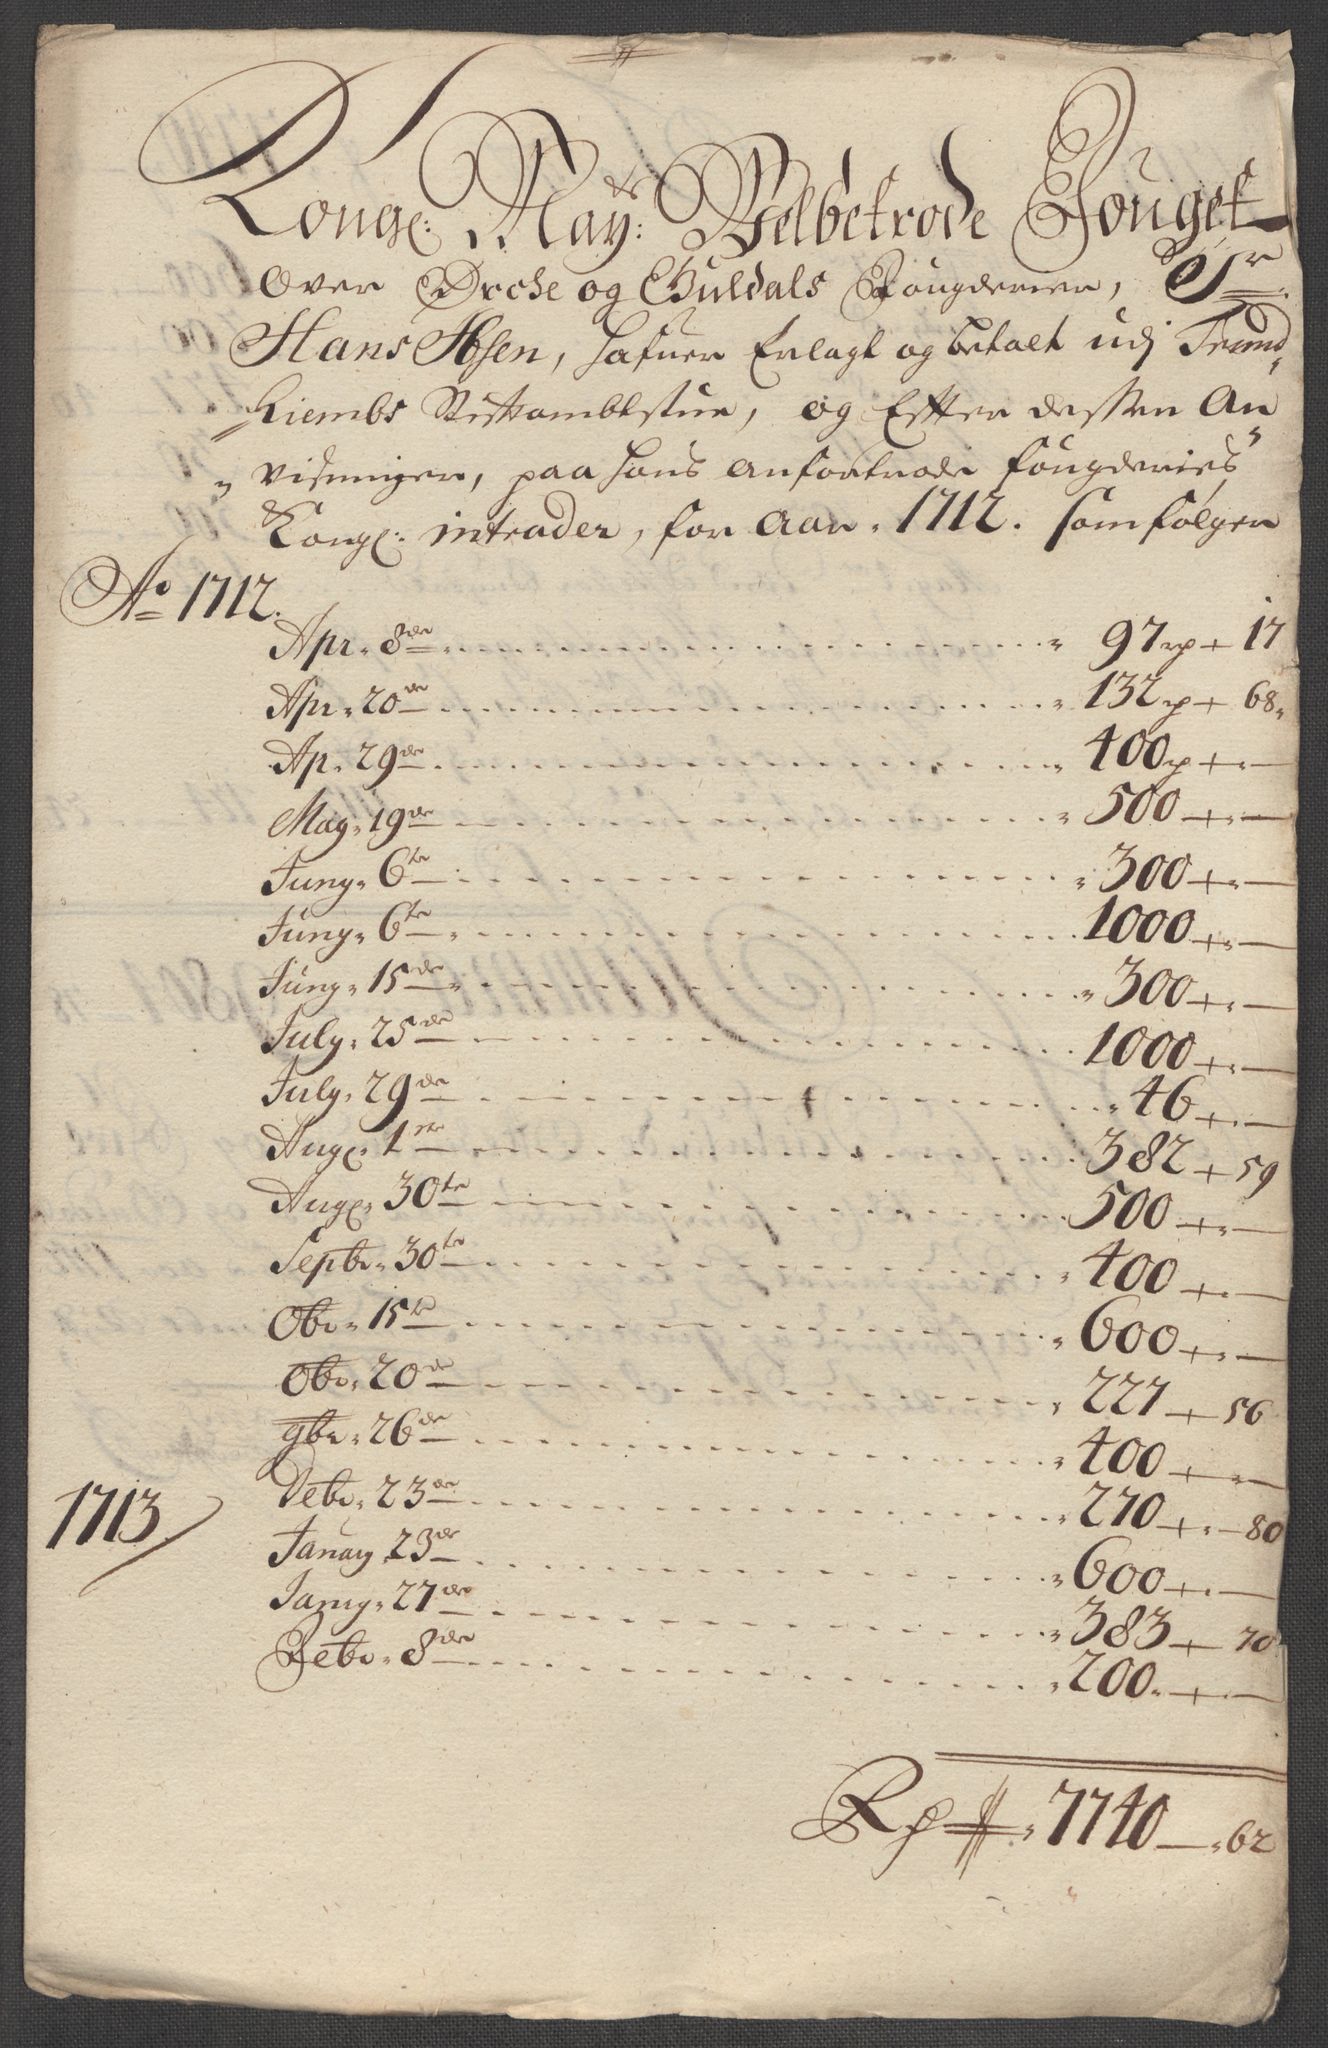 Kongl: Mayts: Velbetrode Fouget
Over Orche og Guldals Fougderier, Sr
Hans Ibsen, hafuer Erlagt og betalt udj Trund,,
hiembs Stiftambtstue, og Efter dessen An
,, visninger, paa hans anfortrode fougderies
Kongl: intrader, for Aar 1712. som følger
Ao 1712.
Apr. 8de 97 rp + 17
Apr. 20de 132 rp + 68
Ap. 29de 400 rp + -
May. 19de 500 + -
Juny. 6te 300 + -
Juny. 6te 1000 + -
Juny. 15de 300 + -
July. 25de 1000 + -
July. 29de 46 + -
Augl. 1ste 382 + 59
Augl. 30te 500 + -
Septbr. 30te 400 + -
Obr. 15te 600 + -
Obr. 20de 227 + 56
9br. 26de 400 + -
Debr. 23de 270 + 80
1713
Januy. 23de 600 + -
Janry. 27de 383 + 70
Febr. 8de 200 + -
Rp 7740 - 62